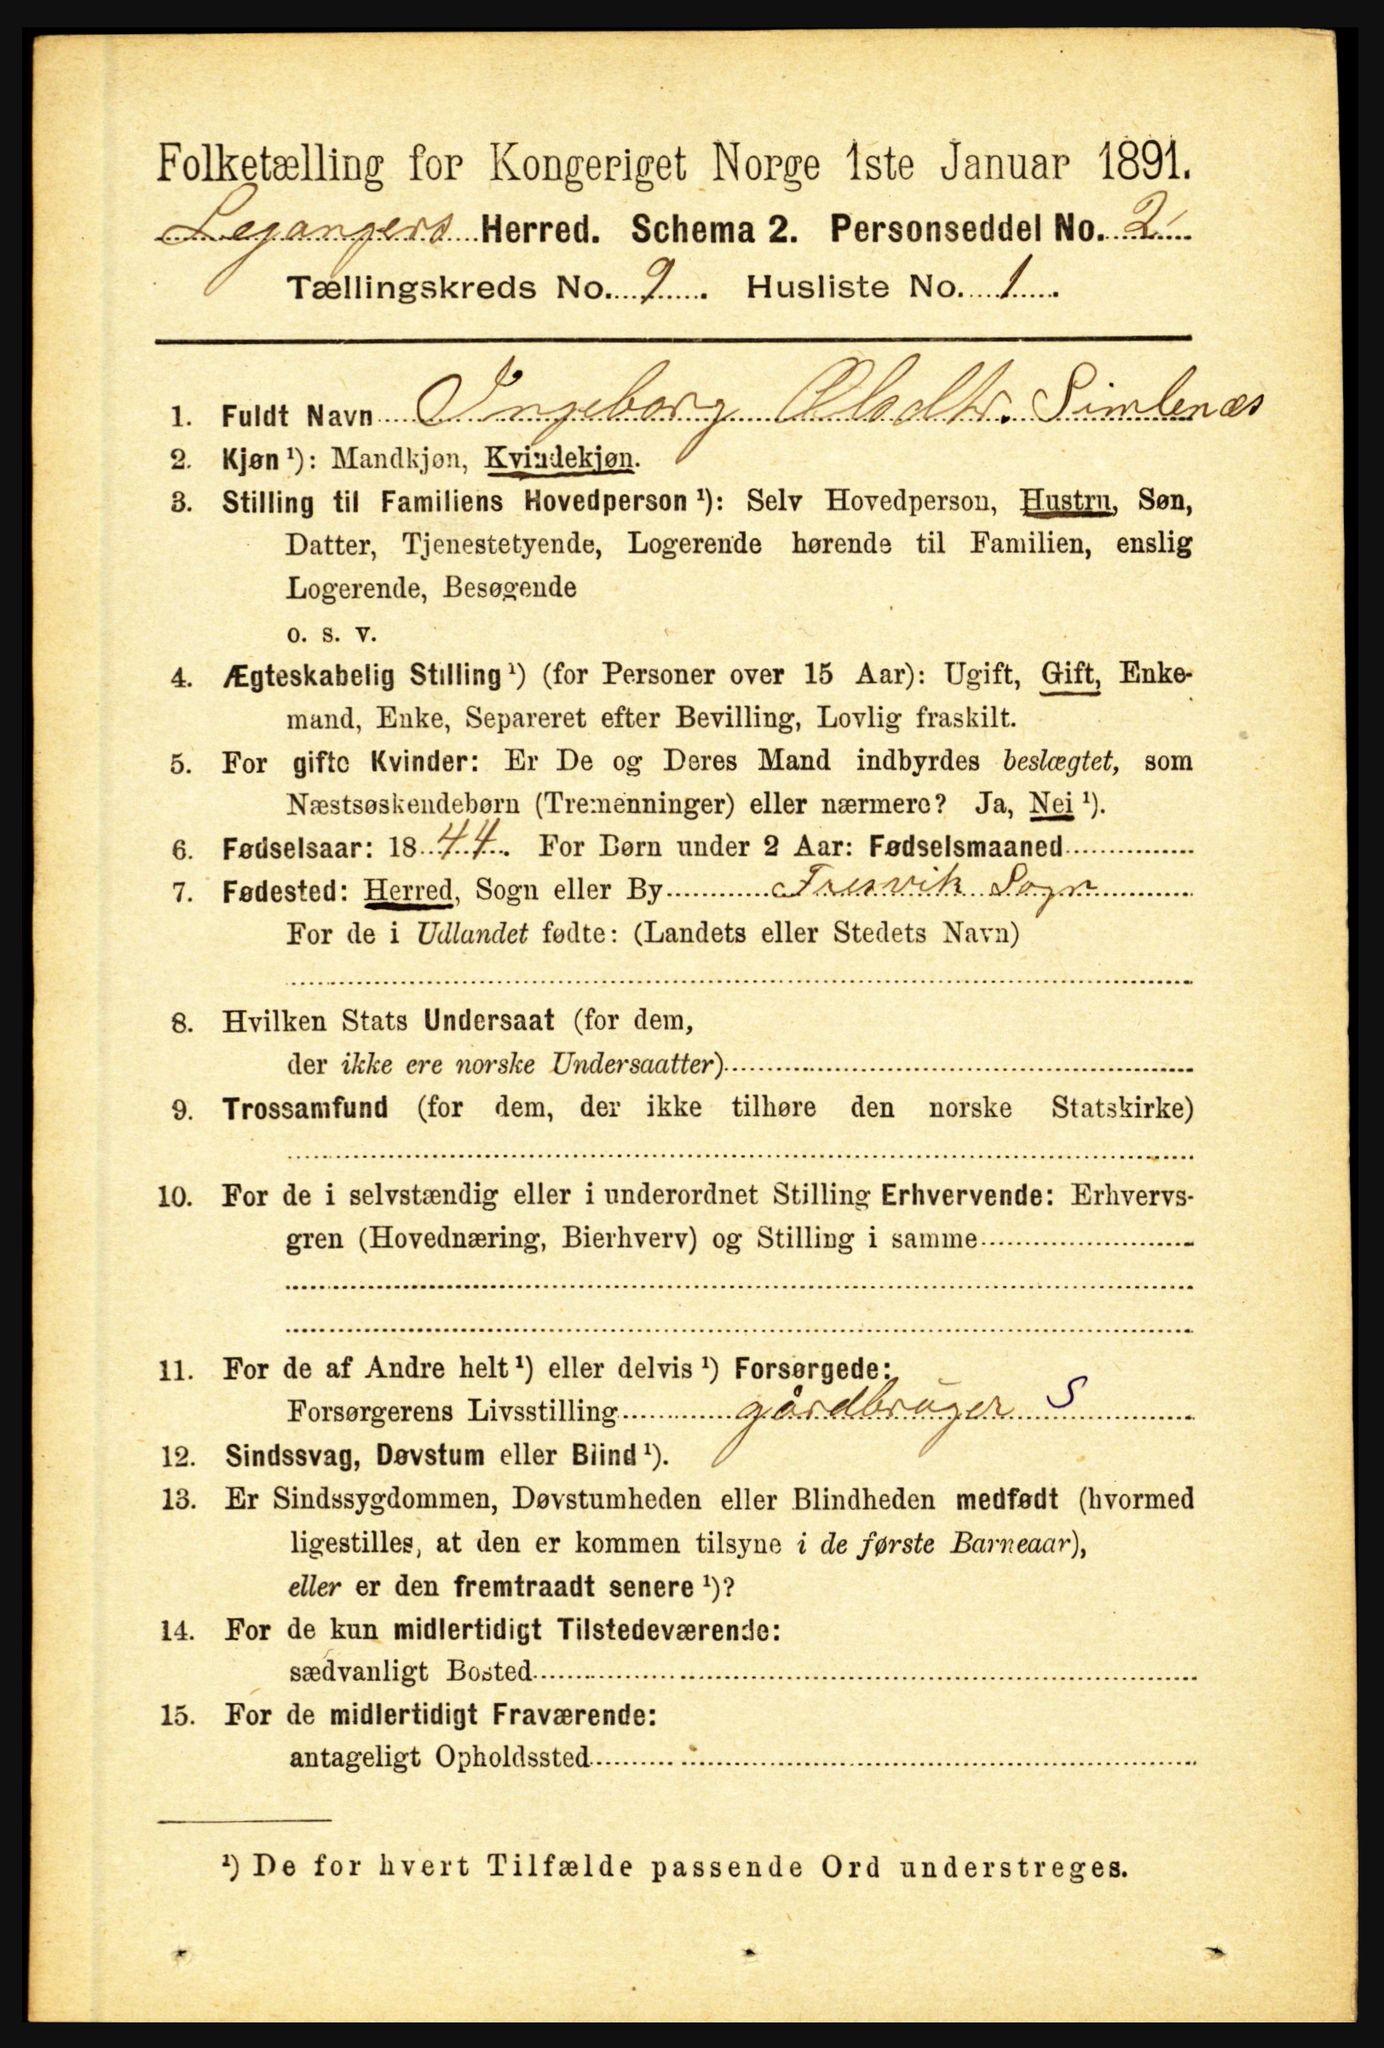 Folketælling for Kongeriget Norge 1ste Januar 1891.
Leganger's Herred. Schema 2. Personseddel No. 2
Tællingskreds No. 9. Husliste No. 1.
1. Fuldt Navn Ingeborg Olsdtr. Simlenæs
2. Kjøn ¹): Mandkjøn, Kvindekjøn.
3. Stilling til Familiens Hovedperson ¹): Selv Hovedperson, Hustru, Søn,
Datter, Tjenestetyende, Logerende hørende til Familien, enslig
Logerende, Besøgende
o. s. v.
4. Ægteskabelig Stilling ¹) (for Personer over 15 Aar): Ugift, Gift, Enke-
mand, Enke, Separeret efter Bevilling, Lovlig fraskilt.
5. For gifte Kvinder: Er De og Deres Mand indbyrdes beslægtet, som
Næstsøskendebørn (Tremenninger) eller nærmere? Ja, Nei ¹).
6. Fødselsaar: 1844. For Børn under 2 Aar: Fødselsmaaned
7. Fødested: Herred, Sogn eller By Fresvik Sogn
For de i Udlandet fødte: (Landets eller Stedets Navn)
8. Hvilken Stats Undersaat (for dem,
der ikke ere norske Undersaatter)
9. Trossamfund (for dem, der ikke tilhøre den norske Statskirke)
10. For de i selvstændig eller i underordnet Stilling Erhvervende: Erhvervs-
gren (Hovednæring, Bierhverv) og Stilling i samme
11. For de af Andre helt ¹) eller delvis ¹) Forsørgede:
Forsørgerens Livsstilling gårdbruger S
12. Sindssvag, Døvstum eller Blind ¹).
13. Er Sindssygdommen, Døvstumheden eller Blindheden medfødt (hvormed
ligestilles, at den er kommen tilsyne i de første Barneaar),
eller er den fremtraadt senere ¹)?
14. For de kun midlertidigt Tilstedeværende:
sædvanligt Bosted
15. For de midlertidigt Fraværende:
antageligt Opholdssted
¹) De for hvert Tilfælde passende Ord understreges.